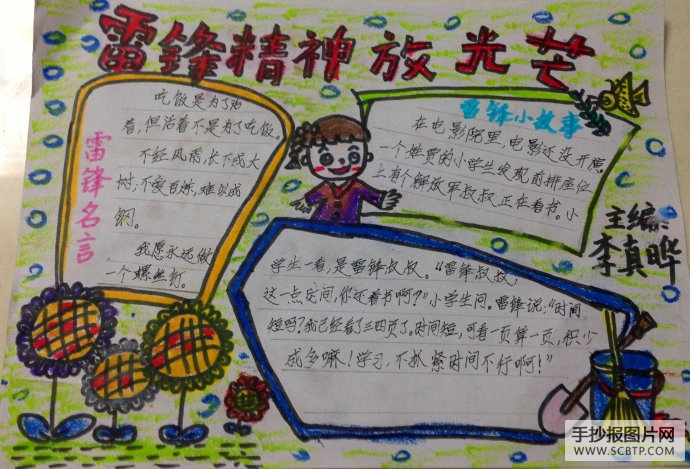 雷锋精神放光芒
雷锋名言
吃饭是为了活
着,但活着不是为了吃饭。
不经风雨,长不成大
树;不受百炼,难以成
钢。
我愿永远做
一个螺丝钉。
雷锋小故事
在电影院里,电影还没开演
一个姓贾的小学生发现前排座位
上有个解放军叔叔正在看书。小
学生一看,是雷锋叔叔。“雷锋叔叔,
这一点时间,你还看书啊?”小学生问。雷锋说:“时间
短吗?我已经看了三四页了。时间短,可看一页算一页,积少
成多嘛!学习,不抓紧时间不行啊!”
主编:
李真晔
手抄报图片网
WWW.SCBTP.COM